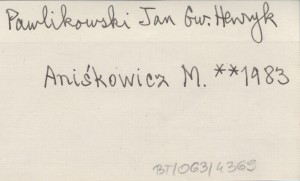 Pawlikowski Jan Gw. Henryk
Aniśkowicz M. **1983
BT/063/4369